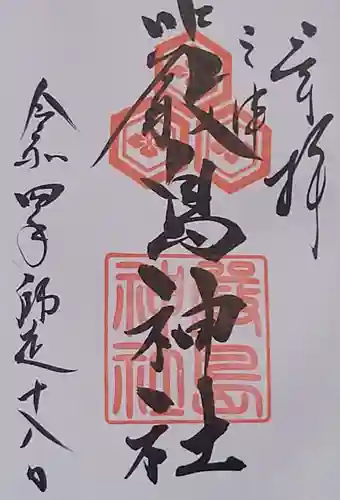 奉拝
之津
嚴島神社
嚴島神社
令和四年師走十八日